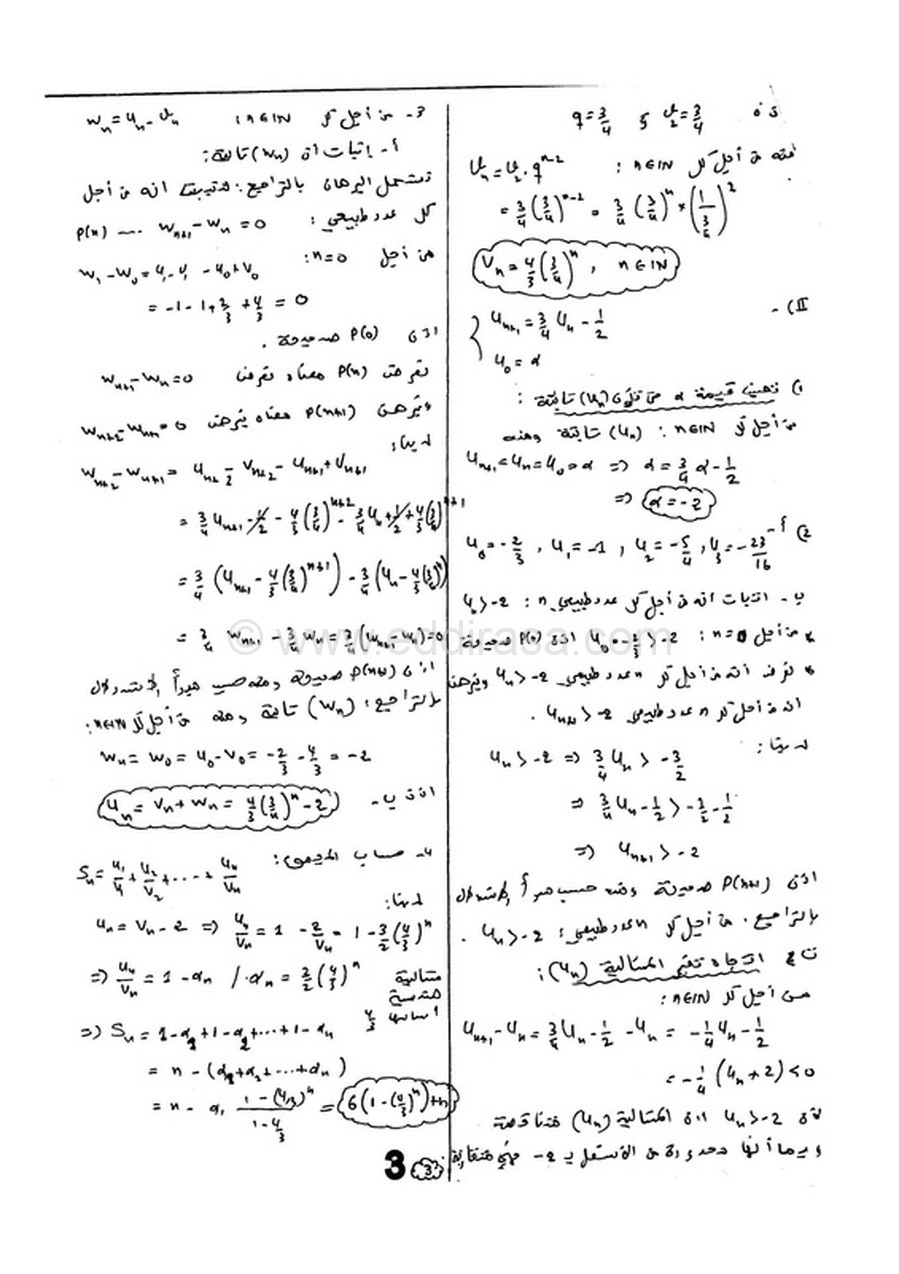 q = 3/4 و v₂ = 3/4
منه من أجل كل n∈IN : vₙ = v₂ . qⁿ⁻²
= 3/4 (3/4)ⁿ⁻² = 3/4 (3/4)ⁿ × (1/(3/4))²
Vₙ = 4/3 (3/4)ⁿ , n∈IN
II) -
{ uₙ₊₁ = 3/4 Uₙ - 1/2
u₀ = α
1) تعيين قيمة α حتى تكون (uₙ) ثابتة :
من أجل كل n∈IN : (uₙ) ثابتة ومنه
uₙ₊₁ = uₙ = u₀ = α ⇒ α = 3/4 α - 1/2
⇒ α = -2
2) أ- u₀ = -2/3 , u₁ = -1 , u₂ = -5/4 , u₃ = -23/16
ب- اثبات أنه من أجل كل عدد طبيعي n : uₙ > -2
* من أجل n = 0 : u₀ = -2/3 > -2 اذن P(0) صحيحة
* نفرض أنه من أجل كل n عدد طبيعي uₙ > -2 ونبرهن
أنه من أجل كل n عدد طبيعي uₙ₊₁ > -2 .
لدينا : uₙ > -2 ⇒ 3/4 uₙ > -3/2
⇒ 3/4 uₙ - 1/2 > -3/2 - 1/2
⇒ uₙ₊₁ > -2
اذن P(n+1) صحيحة ومنه حسب مبدأ الاستدلال
بالتراجع . من أجل كل n عدد طبيعي : uₙ > -2 .
اتجاه تغير المتتالية (uₙ) :
من أجل كل n∈IN :
uₙ₊₁ - uₙ = 3/4 uₙ - 1/2 - uₙ = -1/4 uₙ - 1/2
= -1/4 (uₙ + 2) < 0
لأن uₙ > -2 اذن المتتالية (uₙ) متناقصة
وبما أنها محدودة من الأسفل بـ -2 فهي متقاربة .
3- من أجل كل n∈IN : wₙ = uₙ - vₙ
أ- إثبات أن (wₙ) ثابتة :
نستعمل البرهان بالتراجع : لنثبت أنه من أجل
كل عدد طبيعي : P(n) .... wₙ₊₁ - wₙ = 0
من أجل n = 0 : w₁ - w₀ = u₁ - v₁ - u₀ + v₀
= -1 - 1 + 2/3 + 4/3 = 0
اذن P(0) صحيحة .
نفرض P(n) معناه نفرض wₙ₊₁ - wₙ = 0
ونبرهن P(n+1) معناه نبرهن wₙ₊₂ - wₙ₊₁ = 0
لدينا :
wₙ₊₂ - wₙ₊₁ = uₙ₊₂ - vₙ₊₂ - uₙ₊₁ + vₙ₊₁
= 3/4 uₙ₊₁ - 1/2 - 4/3 (3/4)ⁿ⁺² - 3/4 uₙ + 1/2 + 4/3 (3/4)ⁿ⁺¹
= 3/4 (uₙ₊₁ - 4/3 (3/4)ⁿ⁺¹) - 3/4 (uₙ - 4/3 (3/4)ⁿ)
= 3/4 wₙ₊₁ - 3/4 wₙ = 3/4 (wₙ₊₁ - wₙ) = 0
اذن P(n+1) صحيحة ومنه حسب مبدأ الاستدلال
بالتراجع : (wₙ) ثابتة ومنه من أجل كل n∈IN :
wₙ = w₀ = u₀ - v₀ = -2/3 - 4/3 = -2
ب- uₙ = vₙ + wₙ = 4/3 (3/4)ⁿ - 2
4- حساب المجموع : Sₙ = u₁/v₁ + u₂/v₂ + .... + uₙ/vₙ
لدينا :
uₙ = vₙ - 2 ⇒ uₙ/vₙ = 1 - 2/vₙ = 1 - 3/2 (4/3)ⁿ
⇒ uₙ/vₙ = 1 - αₙ / αₙ = 3/2 (4/3)ⁿ متتالية هندسية أساسها 4/3
⇒ Sₙ = 1 - α₁ + 1 - α₂ + .... + 1 - αₙ
= n - (α₁ + α₂ + .... + αₙ)
= n - α₁ (1 - (4/3)ⁿ)/(1 - 4/3) = 6(1 - (4/3)ⁿ) + n
3 3
© www.eddirasa.com